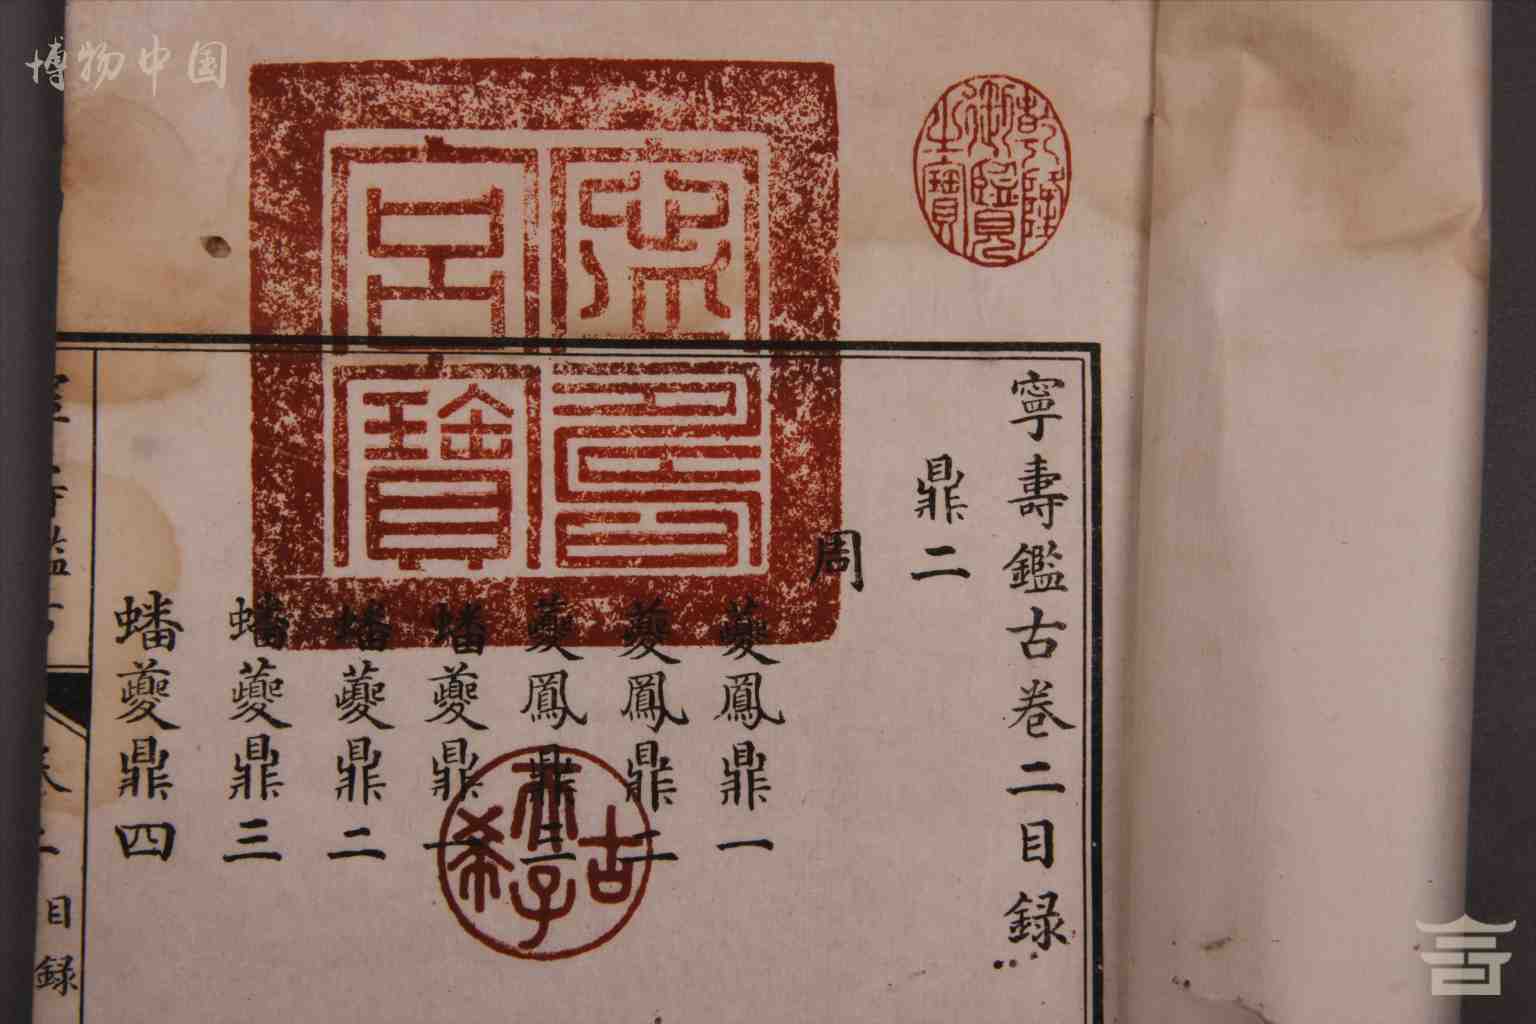 博物中国
乾隆御覽之寶
寧壽宮寶
寧壽鑑古卷二目録
鼎二
周
夔鳳鼎一
夔鳳鼎二
夔鳳鼎三
蟠夔鼎一
蟠夔鼎二
蟠夔鼎三
蟠夔鼎四
古希天子
目録